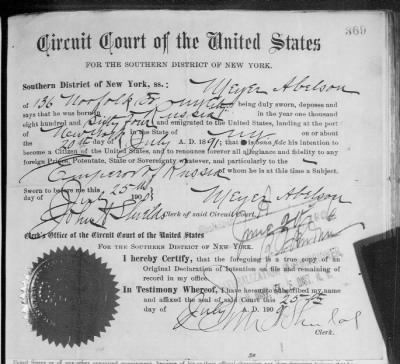 369
Circuit Court of the United States
FOR THE SOUTHERN DISTRICT OF NEW YORK.
Southern District of New York, ss.: Meyer Abelson
of 136 Norfolk St being duly sworn, deposes and
says that he was born in Russia in the year one thousand
eight hundred and sixty four and emigrated to the United States, landing at the port
of New York in the State of N.Y. on or about
the day of July A. D. 1891; that it is bona fide his intention to
become a Citizen of the United States, and to renounce forever all allegiance and fidelity to any
foreign Prince, Potentate, State or Sovereignty whatever, and particularly to the
Emperor of Russia of whom he is at this time a Subject.
Sworn to before me this 25th Meyer Abelson
day of July 190
John A. Shields
Clerk of said Circuit Court.
Clerk's Office of the Circuit Court of the United States
FOR THE SOUTHERN DISTRICT OF NEW YORK.
I hereby Certify, that the foregoing is a true copy of an
Original Declaration of Intention on file and remaining of
record in my office.
In Testimony Whereof, I have hereunto subscribed my name
and affixed the seal of said Court this 25th
day of July A. D. 190
John A. Shields
Clerk.